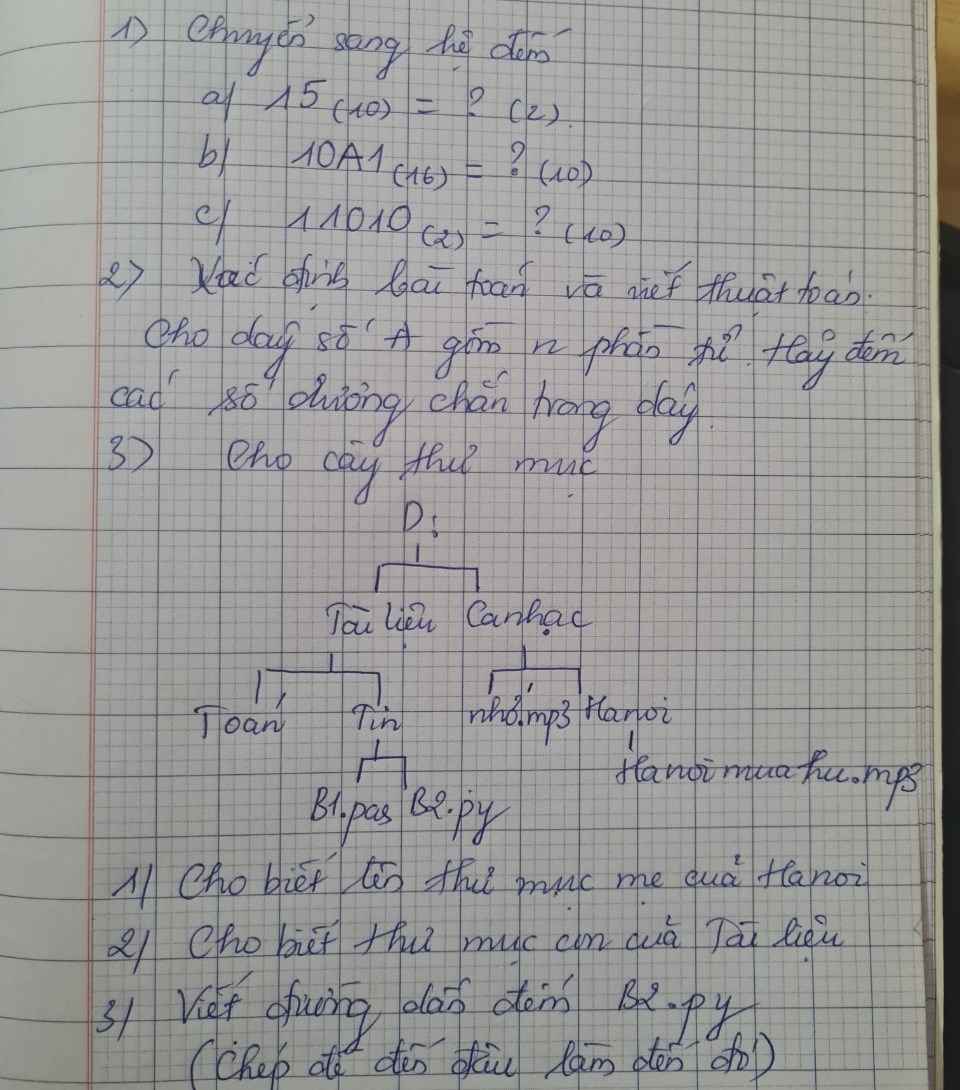 1) Chuyển sang hệ đếm
a) 15(10) = ? (2)
b) 10A1(16) = ? (10)
c) 11010(2) = ? (10)
2) Xác định bài toán và viết thuật toán.
Cho dãy số A gồm n phần tử. Hãy đếm
các số dương chẵn trong dãy.
3) Cho cây thư mục
D:
Tài liệu Canhạc
Toán Tin nhớ.mp3 Hanoi
Hanoimuathu.mp3
B1.pas B2.py
1) Cho biết tên thư mục mẹ của Hanoi
2) Cho biết thư mục con của Tài liệu
3) Viết đường dẫn đến B2.py
(Chép đề đến đâu làm đến đó)